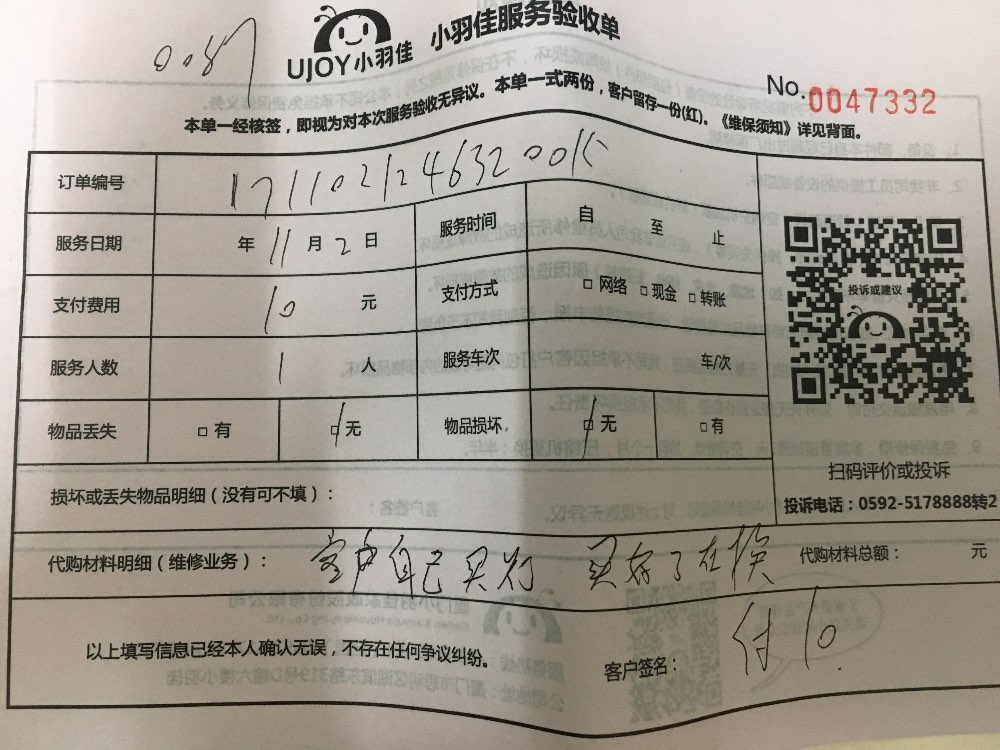 0087
UJOY小羽佳 小羽佳服务验收单
No.0047332
本单一经核签，即视为对本次服务验收无异议。本单一式两份，客户留存一份(红)。《维保须知》详见背面。
订单编号 1711021246320015
服务日期 年 11 月 2 日 服务时间 自 至 止
支付费用 10 元 支付方式 □ 网络 □ 现金 □ 转账
投诉或建议
服务人数 1 人 服务车次 车/次
物品丢失 □ 有 □ 无 物品损坏 □ 无 □ 有
扫码评价或投诉
损坏或丢失物品明细（没有可不填）：
投诉电话：0592-5178888转2
代购材料明细（维修业务）： 客户自己买灯 买好了在换 代购材料总额： 元
以上填写信息已经本人确认无误，不存在任何争议纠纷。 客户签名： 付10